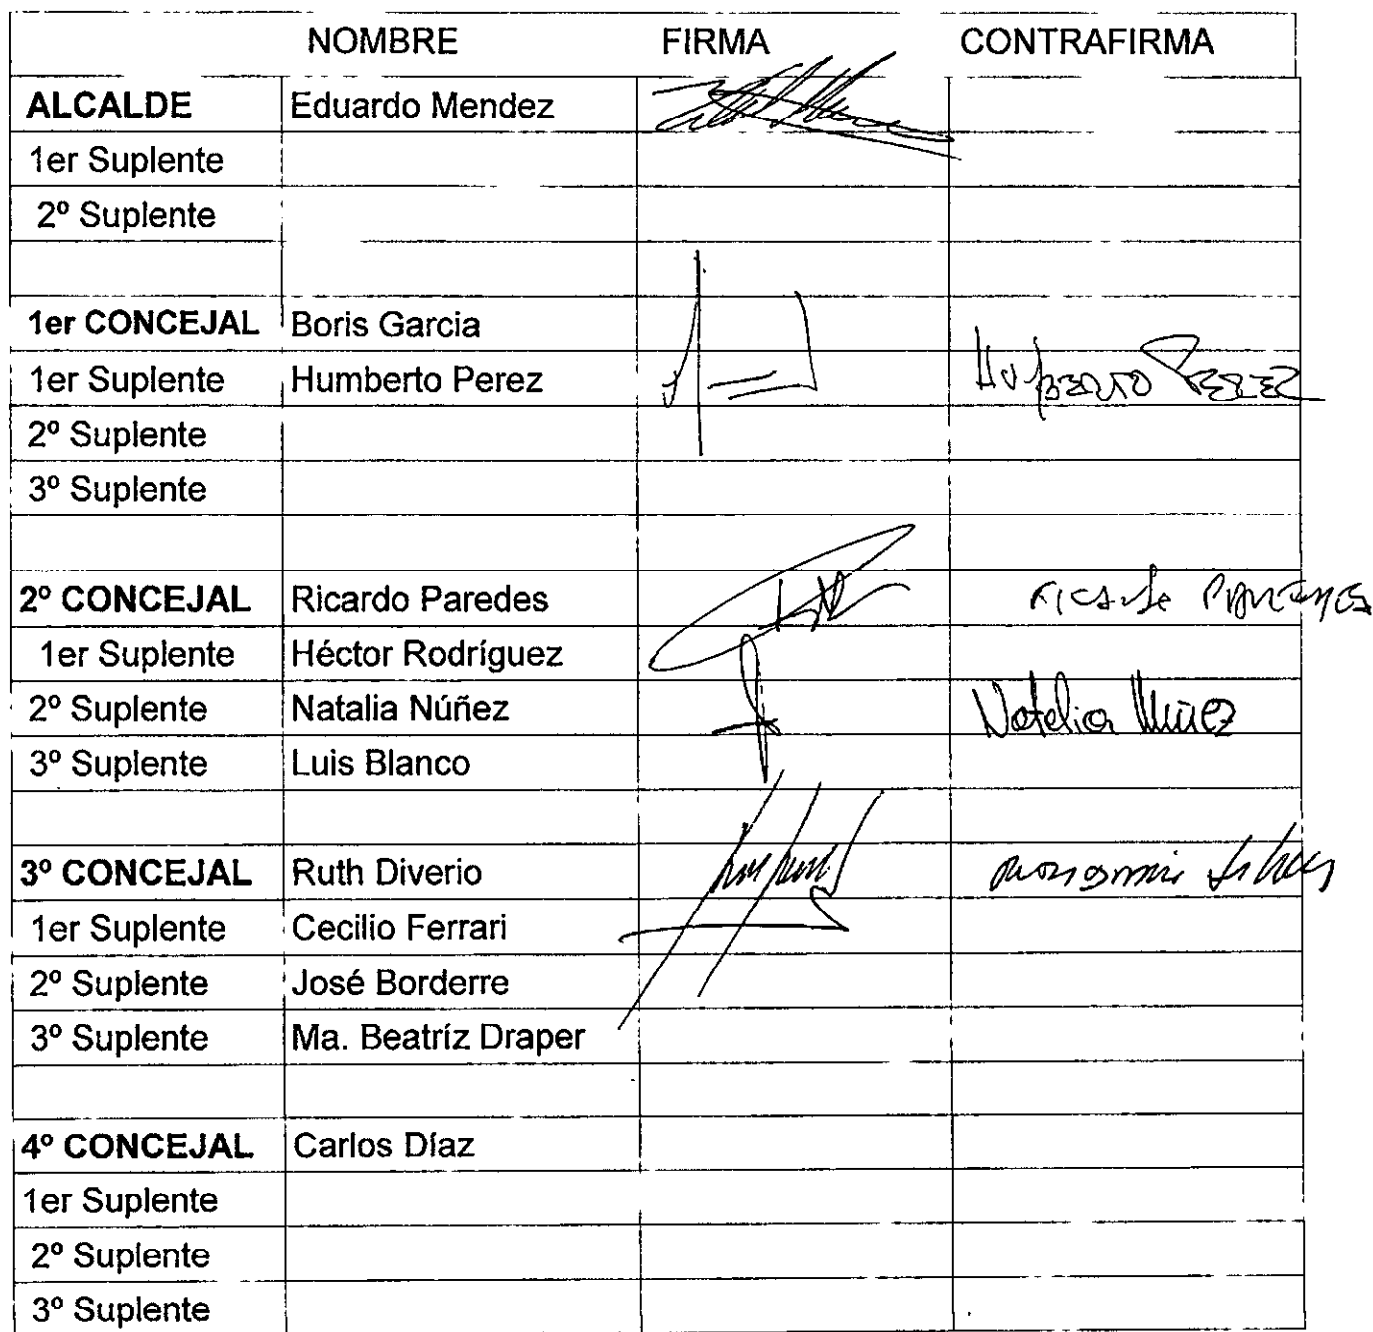 NOMBRE FIRMA CONTRAFIRMA
ALCALDE Eduardo Mendez
1er Suplente
2º Suplente
1er CONCEJAL Boris Garcia
1er Suplente Humberto Perez Humberto Perez
2º Suplente
3º Suplente
2º CONCEJAL Ricardo Paredes Ricardo Paredes
1er Suplente Héctor Rodríguez
2º Suplente Natalia Núñez Natalia Núñez
3º Suplente Luis Blanco
3º CONCEJAL Ruth Diverio
1er Suplente Cecilio Ferrari
2º Suplente José Borderre
3º Suplente Ma. Beatríz Draper
4º CONCEJAL Carlos Díaz
1er Suplente
2º Suplente
3º Suplente